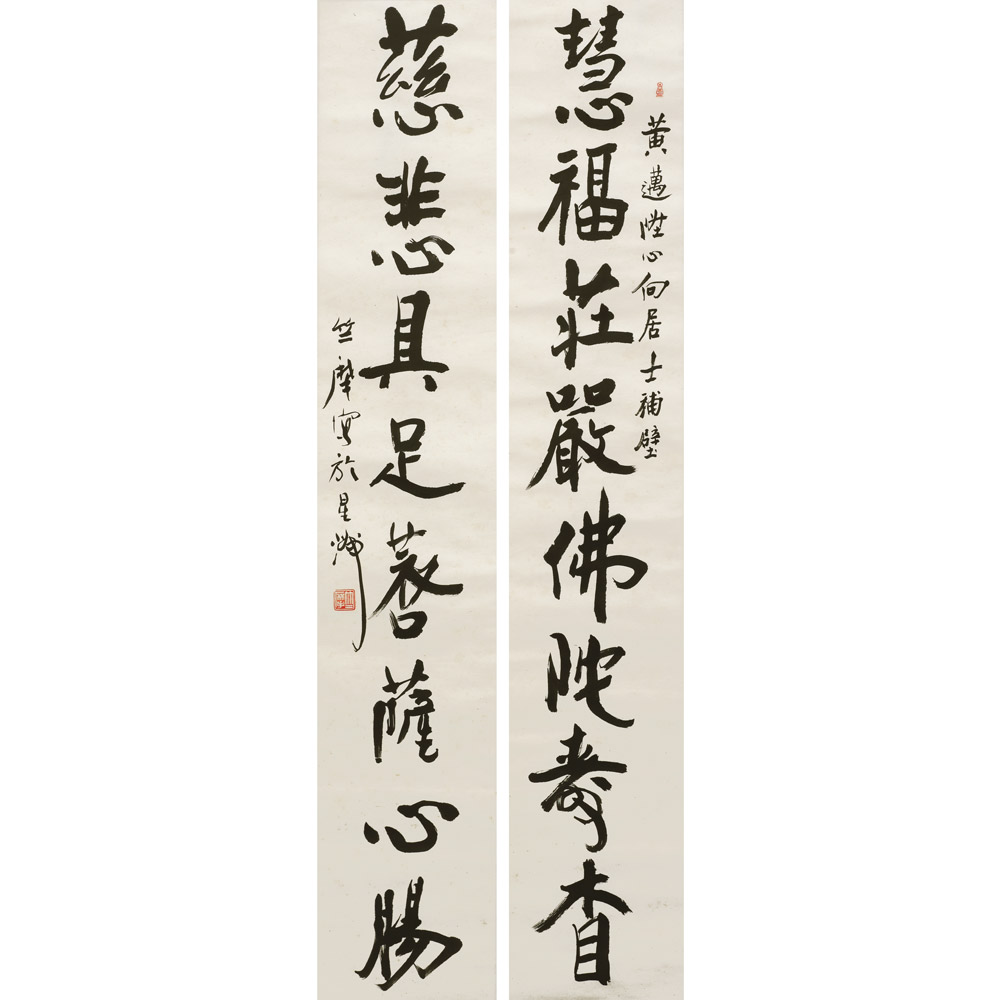 黃邁陞心向居士補壁
慧福莊嚴佛陀壽相
慈悲具足菩薩心腸
竺摩寫於星洲